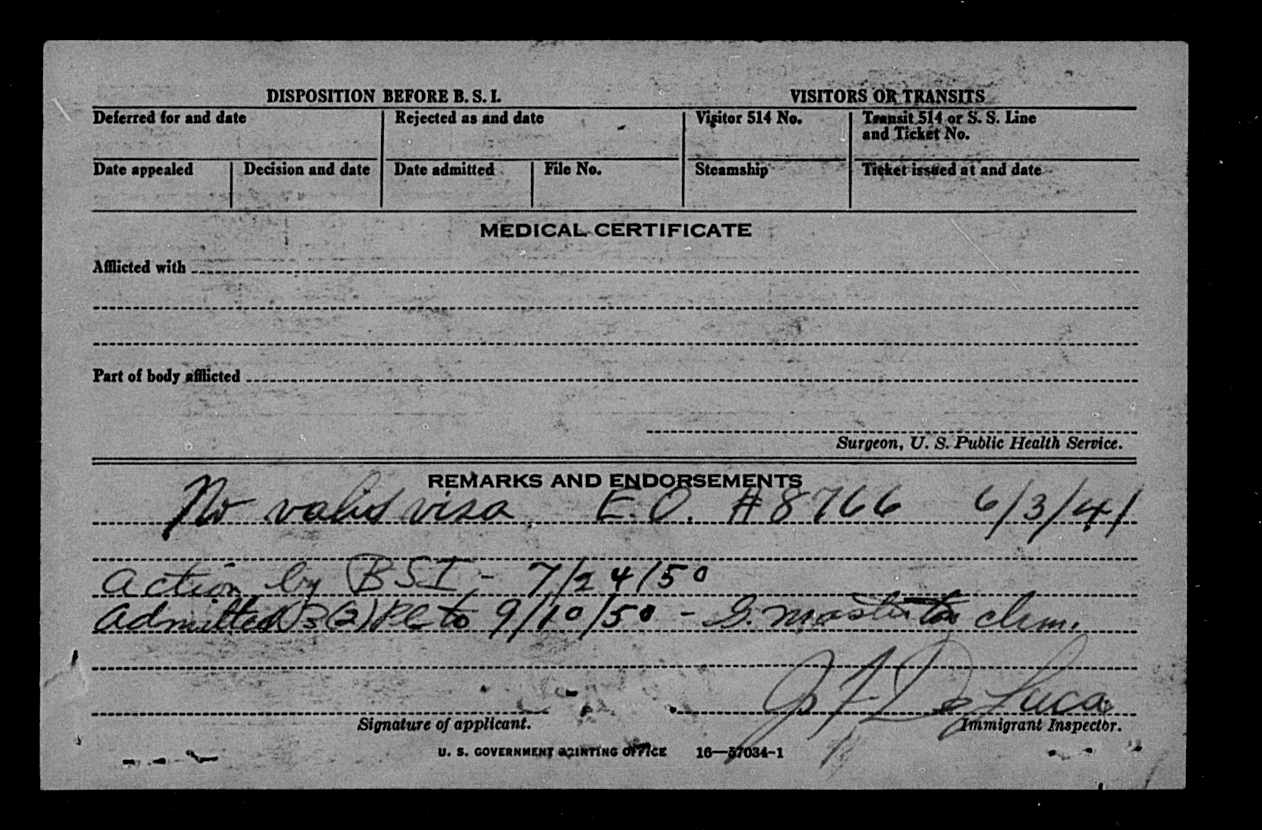 DISPOSITION BEFORE B. S. I. VISITORS OR TRANSITS
Deferred for and date Rejected as and date Visitor 514 No. Transit 514 or S. S. Line
and Ticket No.
Date appealed Decision and date Date admitted File No. Steamship Ticket issued at and date
MEDICAL CERTIFICATE
Afflicted with
Part of body afflicted
Surgeon, U. S. Public Health Service.
REMARKS AND ENDORSEMENTS
No valid visa, E.O. #8766 6/3/41
Action by BSI - 7/24/50
Admitted 3(2) to 9/10/50 - G. chm.
J F De Luca
Signature of applicant. Immigrant Inspector.
U. S. GOVERNMENT PRINTING OFFICE 16—57034-1